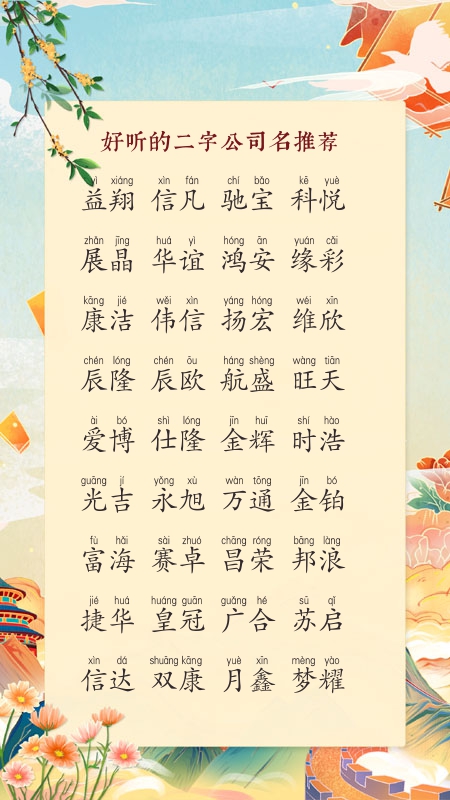 好听的二字公司名推荐
yì xiáng xìn fán chí bǎo kē yuè
益翔 信凡 驰宝 科悦
zhǎn jīng huá yì hóng ān yuán cǎi
展晶 华谊 鸿安 缘彩
kāng jié wěi xìn yáng hóng wéi xīn
康洁 伟信 扬宏 维欣
chén lóng chén ōu háng shèng wàng tiān
辰隆 辰欧 航盛 旺天
ài bó shì lóng jīn huī shí hào
爱博 仕隆 金辉 时浩
guāng jí yǒng xù wàn tōng jīn bó
光吉 永旭 万通 金铂
fù hǎi sài zhuó chāng róng bāng làng
富海 赛卓 昌荣 邦浪
jié huá huáng guān guǎng hé sū qǐ
捷华 皇冠 广合 苏启
xìn dá shuāng kāng yuè xīn mèng yào
信达 双康 月鑫 梦耀